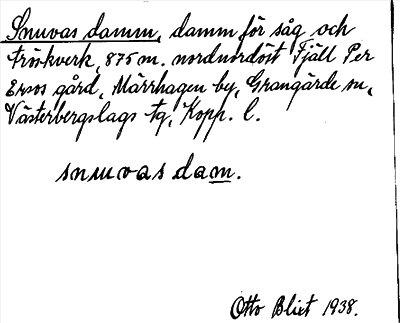 Snuvas damm, damm för såg och
tröskverk, 875 m. nordnordöst Fjäll Per
Ersos gård, Märrhagen by, Grangärde sn,
Västerbergslags tg, Kopp. l.
snuvas dam.
Otto Blixt 1938.